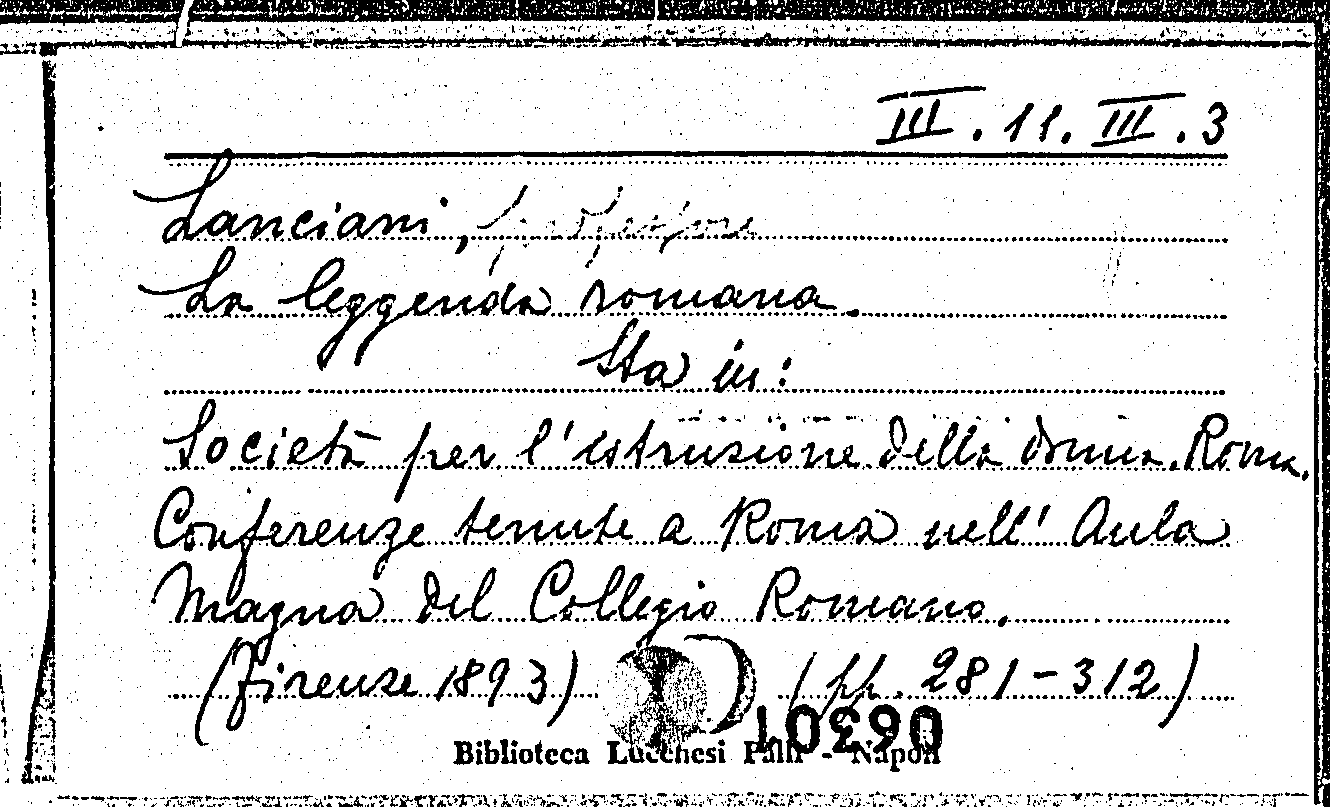 III. 11. III. 3
Lanciani, professore
La leggenda romana.
Sta in:
Società per l'istruzione della donna. Roma.
Conferenze tenute a Roma nell' Aula
Magna del Collegio Romano.
(Firenze 1893) (pp. 281-312)
Biblioteca Lucchesi Palli - Napoli